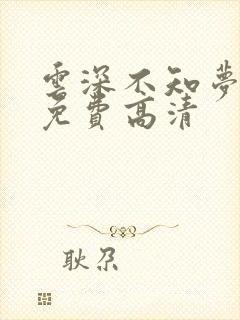 雲深不知夢
免費高清
耿尕